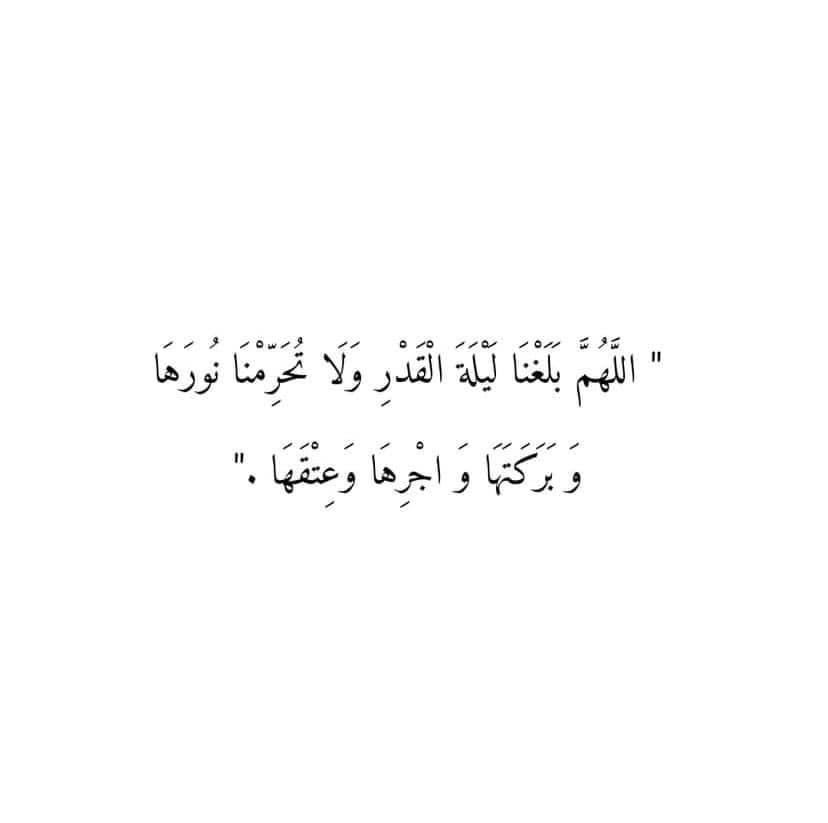 " اللَّهُمَّ بَلَغْنَا لَيْلَةَ الْقَدْرِ وَلَا تُحَرِّمْنَا نُورَهَا
وَ بَرَكَتَهَا وَ اجْرِهَا وَعِتْقَهَا ."